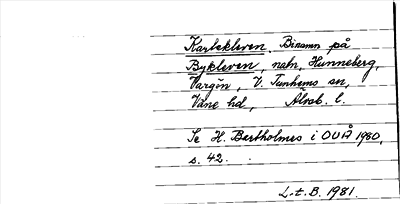 Karlskleven. Binamn på
Bykleven, natn, Hunneberg,
Vargön, V. Tunhems sn,
Väne hd, Älvsb. l.
Se H. Bartholmes i OUÅ 1980,
s. 42.
L.t.B. 1981.